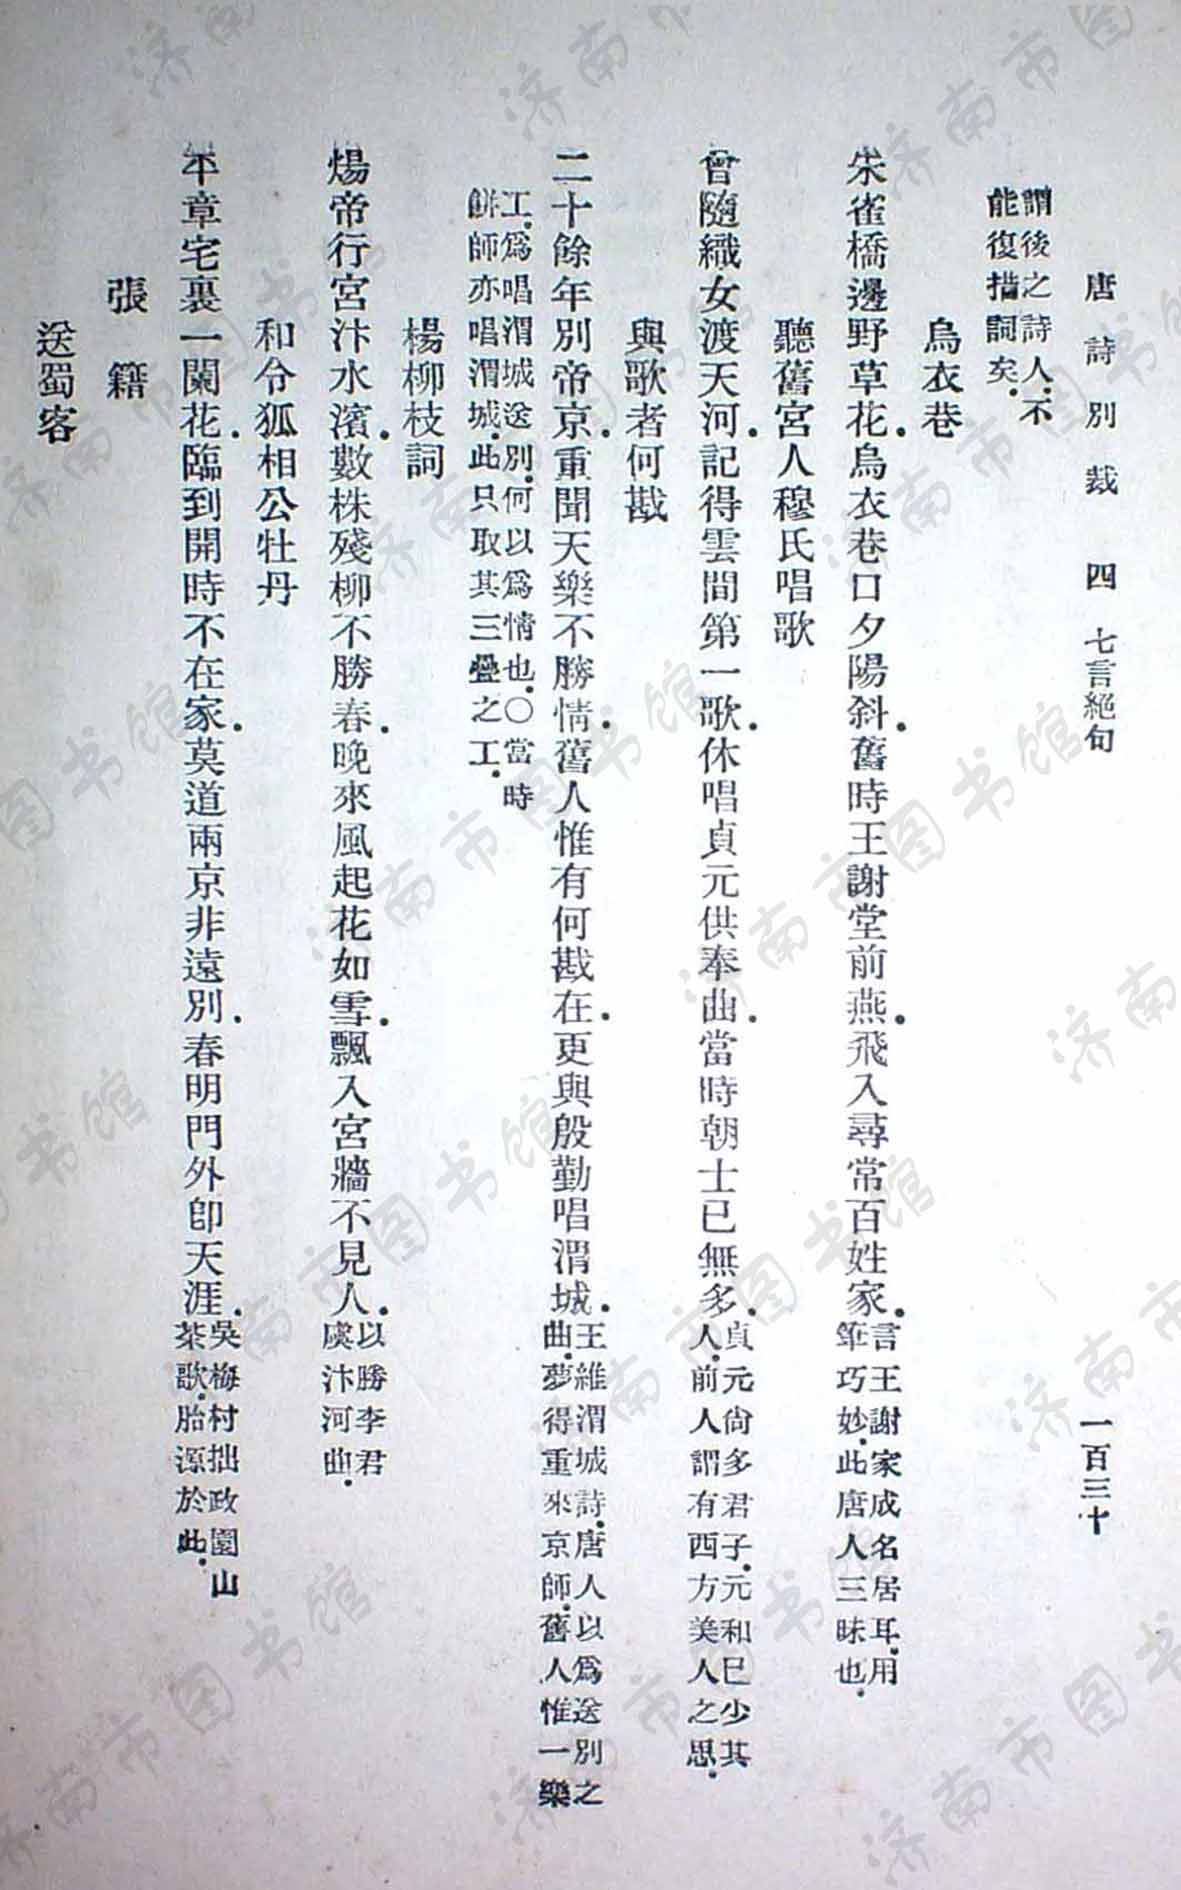 唐詩別裁　四　七言絕句　一百三十
謂後之詩人．不
能復措詞矣．
烏衣巷
朱雀橋邊野草花．烏衣巷口夕陽斜．舊時王謝堂前燕．飛入尋常百姓家．
言王謝家成名居耳．用
筆巧妙．此唐人三昧也．
聽舊宮人穆氏唱歌
曾隨織女渡天河．記得雲間第一歌．休唱貞元供奉曲．當時朝士已無多．
貞元尙多君子．元和已少其
人．前人謂有西方美人之思．
與歌者何戡
二十餘年別帝京．重聞天樂不勝情．舊人惟有何戡在．更與殷勤唱渭城．
王維渭城詩．唐人以爲送別之
曲．夢得重來京師．舊人惟一樂
工．爲唱渭城送別．何以爲情也．〇當時
餠師亦唱渭城．此只取其三疊之工．
楊柳枝詞
煬帝行宮汴水濱．數株殘柳不勝春．晚來風起花如雪．飄入宮牆不見人．
以勝李君
虞汴河曲．
和令狐相公牡丹
平章宅裏一闌花．臨到開時不在家．莫道兩京非遠別．春明門外卽天涯．
吳梅村拙政園山
茶歌．胎源於此．
張籍
送蜀客
濟南市图书馆